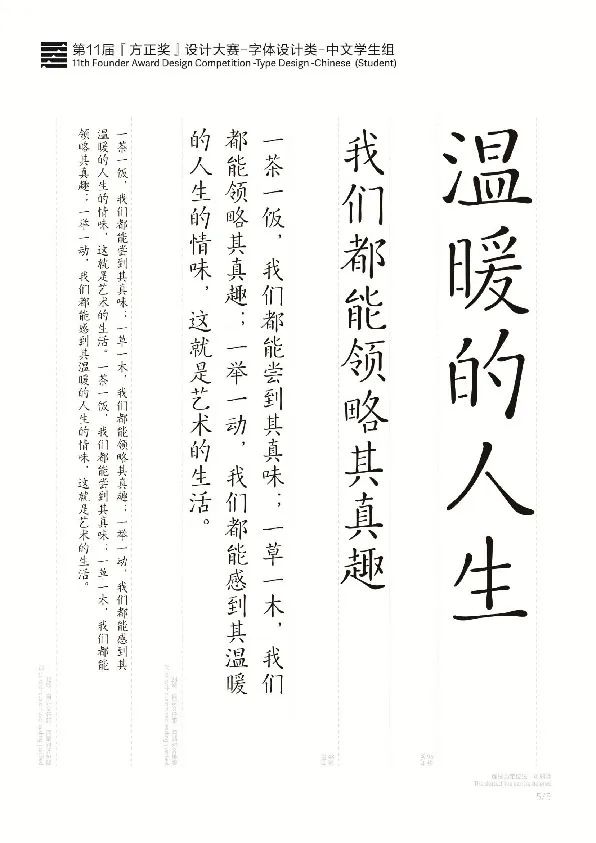 第11届『方正奖』设计大赛-字体设计类-中文学生组
11th Founder Award Design Competition -Type Design -Chinese (Student)
温暖的人生
我们都能领略其真趣
一茶一饭，我们都能尝到其真味；一草一木，我们
都能领略其真趣；一举一动，我们都能感到其温暖
的人生的情味，这就是艺术的生活。
一茶一饭，我们都能尝到其真味；一草一木，我们都能领略其真趣；一举一动，我们都能感到其
温暖的人生的情味，这就是艺术的生活。一茶一饭，我们都能尝到其真味；一草一木，我们都能
领略其真趣；一举一动，我们都能感到其温暖的人生的情味，这就是艺术的生活。
5/5